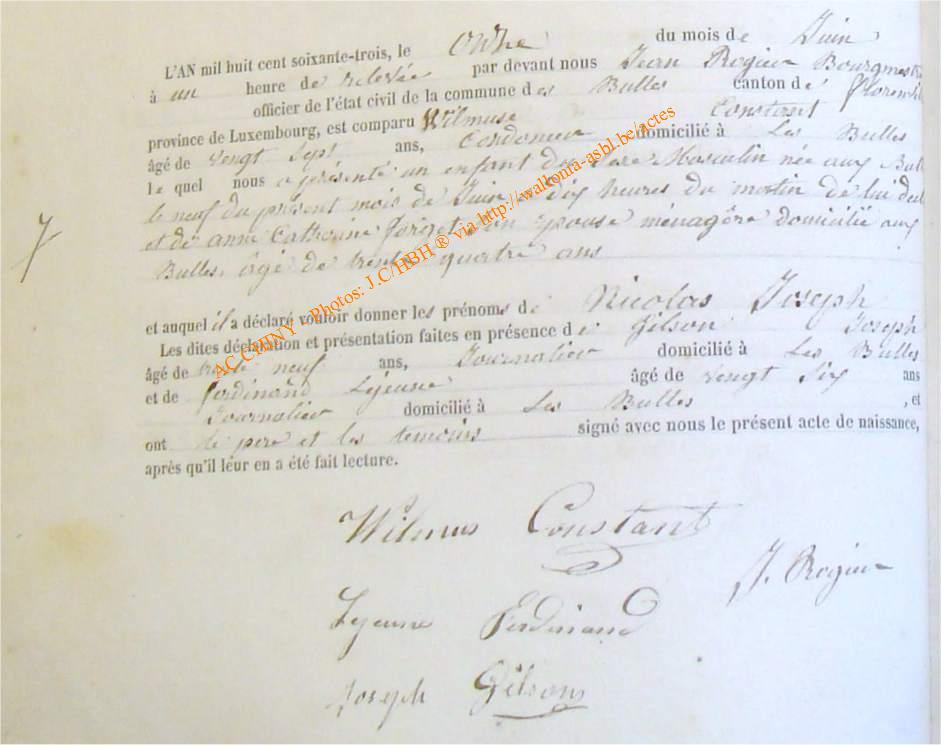 L'AN mil huit cent soixante-trois, le Onze du mois de Juin
à un heure de relevée par devant nous Jean Rogier Bourgmestre
officier de l'état civil de la commune des Bulles canton de Florenville
province de Luxembourg, est comparu Wilmuse Constant
âgé de vengt Sept ans, Cordonier domicilié à Les Bulles
le quel nous a présenté un enfant du sexe Masculin née aux Bul
le neuf du présent mois de Juin a dix heures du mattin de lui decl
et de anne Catherine forget son épouse ménagère domicilié aux
Bulles. âgé de trente quatre ans
7
et auquel il a déclaré vouloir donner les prénoms de Nicolas Joseph
Les dites déclaration et présentation faites en présence de Gilson Joseph
âgé de trente neuf ans, Journalier domicilié à Les Bulles
et de Ferdinand Lejeune âgé de vengt Six ans
Journalier domicilié à Les Bulles , et
ont le pere et les temoins signé avec nous le présent acte de naissance,
après qu'il leur en a été fait lecture.
Wilmus Constant
J. Rogier
Lejeune Ferdinand
Joseph Gilson
AC CHINY - Photos: J.C/HBH ® via http://wallonia-asbl.be/actes